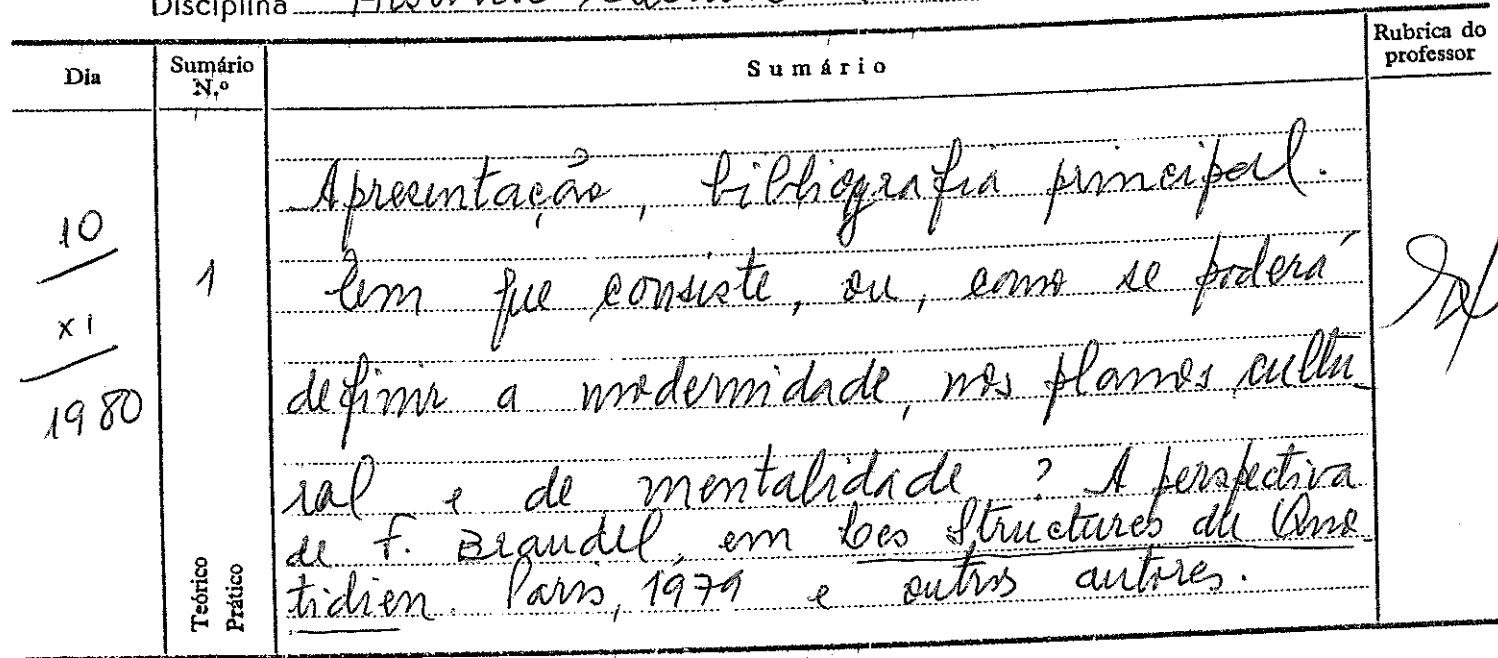 Disciplina
Dia
Sumário N.º
Sumário
Rubrica do professor
10
XI
1980
1
Teórico
Prático
Apresentação, bibliografia principal.
Em que consiste, ou, como se poderá
definir a modernidade, nos planos cultu_
ral e de mentalidade? A perspectiva
de F. Braudel, em Les Structures du Quo_
tidien. Paris, 1979 e outros autores.